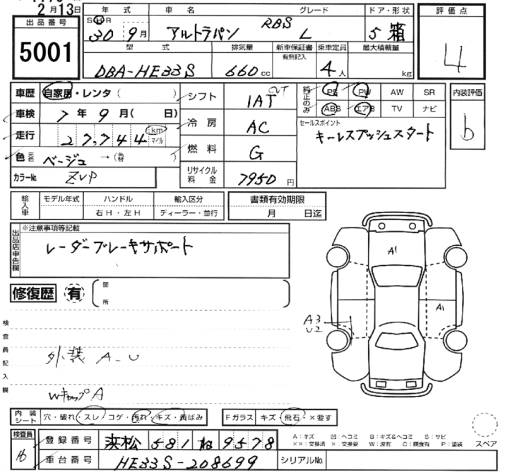 2月13日
出品番号
5001
年式 車名 グレード ドア・形状
S H R 30年9月 アルトラパン RBS L 5 箱
型式 排気量 新車保証書 乗車定員 最大積載量
有無記入
DBA-HE33S 660cc 4人 kg
評価点
4
内装評価
b
車歴 自家用・レンタ( )
車検 7年9月( 日)
走行 27,744 (km マイル)
色 元色 ベージュ →(替 )
カラーNo. ZVP
シフト IAT CVT
冷房 AC
燃料 G
リサイクル料金 7950円
純正のみ PS PW AW SR
ABS エアB TV ナビ
セールスポイント
キーレスプッシュスタート
輸入車 モデル年式 ハンドル 輸入区分
右H・左H ディーラー・並行
書類有効期限
月 日迄
出品店申告欄
※注意事項等記載
レーダーブレーキサポート
修復歴 有 箇所
検査員記入欄
外装 A-U
WキャップA
A1
A1
A3
U2
内装シート 穴・破れ スレ コゲ・汚れ・キズ・黄ばみ
Fガラス キズ・飛石・×要す
A:キズ U:ヘコミ B:キズ&ヘコミ S:サビ
××:交換済 ×:交換要 W:波有 C:腐食有 P:塗装
スペア
検査員
登録番号 浜松 581 や 9578
車台番号 HE33S-208699
シリアルNo.